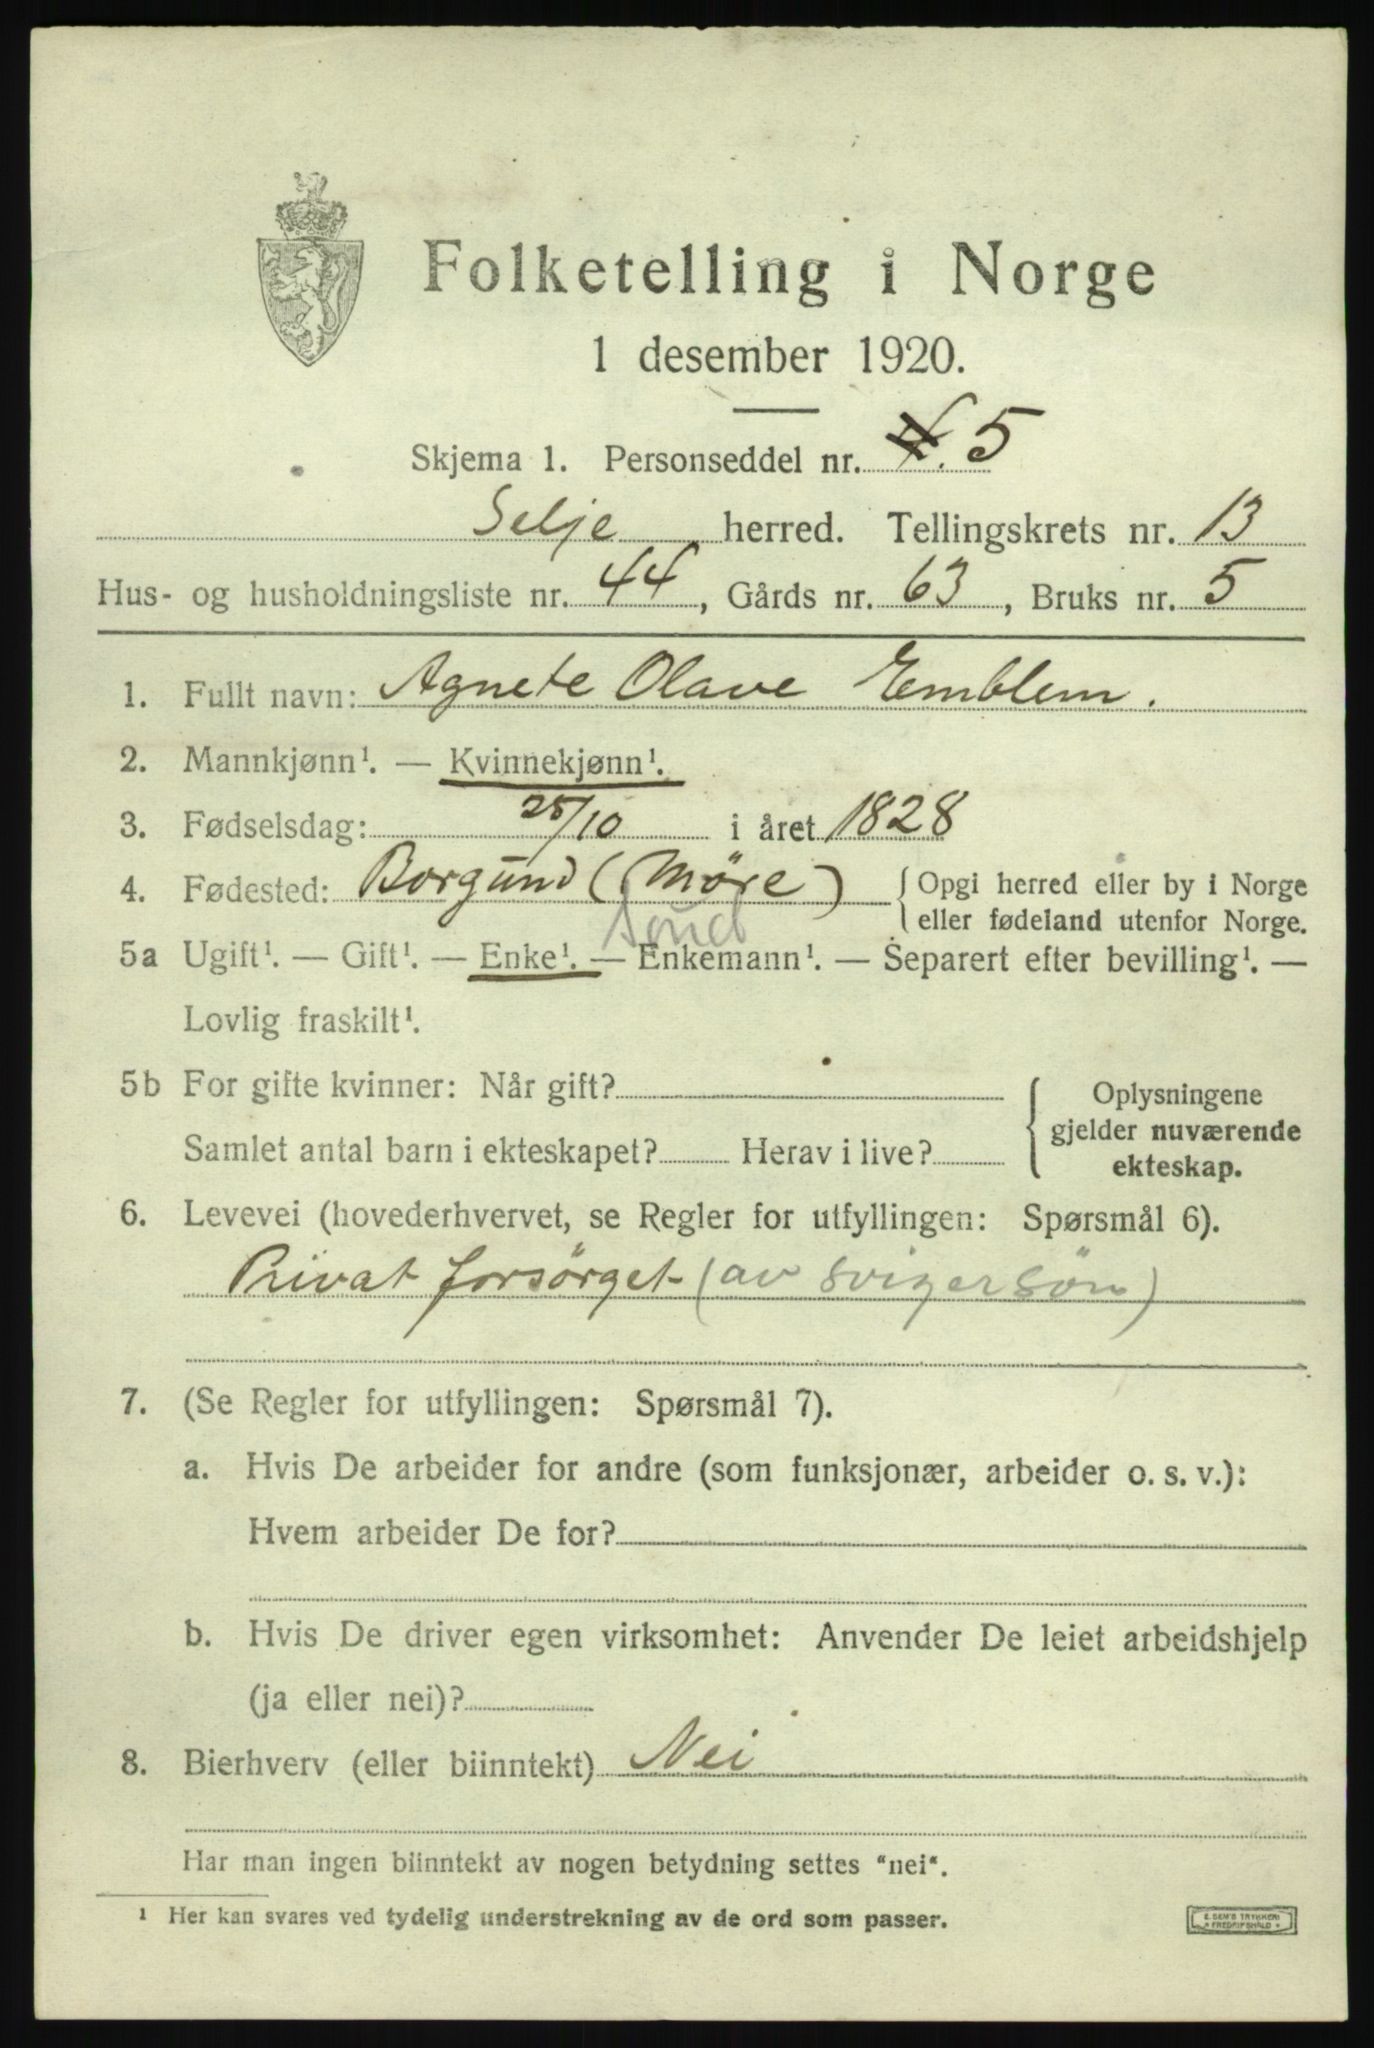 Folketelling i Norge
1 desember 1920.
Skjema 1. Personseddel nr. 5
Selje herred. Tellingskrets nr. 13
Hus- og husholdningsliste nr. 44, Gårds nr. 63, Bruks nr. 5
1. Fullt navn: Agnete Olave Emblem.
2. Mannkjønn¹. — Kvinnekjønn¹.
3. Fødselsdag: 25/10 i året 1828
4. Fødested: Borgund (Möre) Opgi herred eller by i Norge
eller fødeland utenfor Norge.
5a Ugift¹. — Gift¹. — Enke¹. — Enkemann¹. — Separert efter bevilling¹. —
Lovlig fraskilt¹.
5b For gifte kvinner: Når gift? Oplysningene
gjelder nuværende
Samlet antal barn i ekteskapet? Herav i live? ekteskap.
6. Levevei (hovederhvervet, se Regler for utfyllingen: Spørsmål 6).
Privat forsörget (av svigersön)
7. (Se Regler for utfyllingen: Spørsmål 7).
a. Hvis De arbeider for andre (som funksjonær, arbeider o. s. v.):
Hvem arbeider De for?
b. Hvis De driver egen virksomhet: Anvender De leiet arbeidshjelp
(ja eller nei)?
8. Bierhverv (eller biinntekt) Nei
Har man ingen biinntekt av nogen betydning settes "nei".
¹ Her kan svares ved tydelig understrekning av de ord som passer.
E. SEM'S TRYKKERI
FREDRIKSHALD